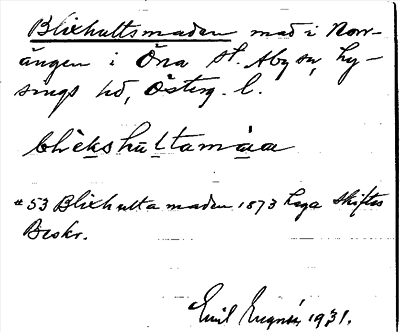 Blixhultsmaden mad i Norr-
ängen i Öna st. Aby sn, Ly-
sings hd, Österg. l.
blèkshultamáaa
# 53 Blixhulta maden 1873 Laga Skiftes
Beskr.
Emil 1931.